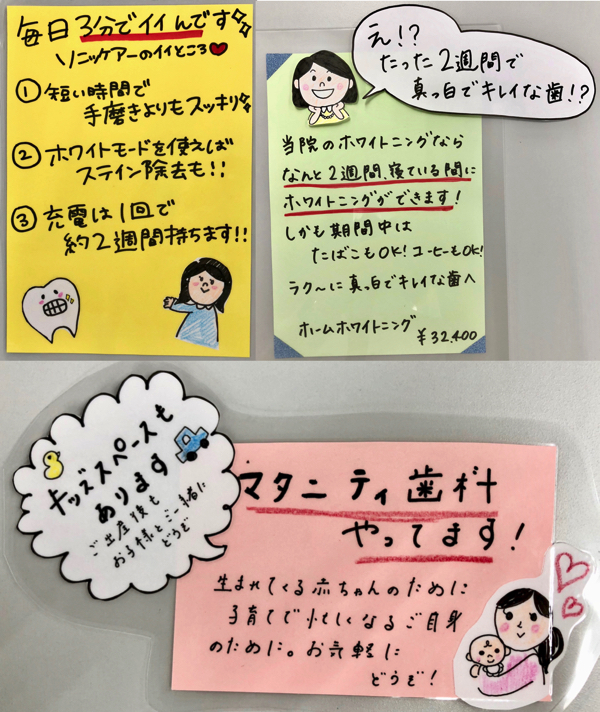 毎日3分でイイんです
ソニッケアーのイイところ♥
① 短い時間で
手磨きよりもスッキリ
② ホワイトモードを使えば
ステイン除去も!!
③ 充電は1回で
約2週間持ちます!!
え!?
たった2週間で
真っ白でキレイな歯!?
当院のホワイトニングなら
なんと2週間、寝ている間に
ホワイトニングができます!
しかも期間中は
たばこもOK!コーヒーもOK!
ラク〜に真っ白でキレイな歯へ
ホームホワイトニング
¥32,400
キッズスペースも
あります
ご出産後も
お子様とご一緒に
どうぞ
マタニティ歯科
やってます!
生まれてくる赤ちゃんのために
子育てで忙しくなるご自身
のために。お気軽に
どうぞ!